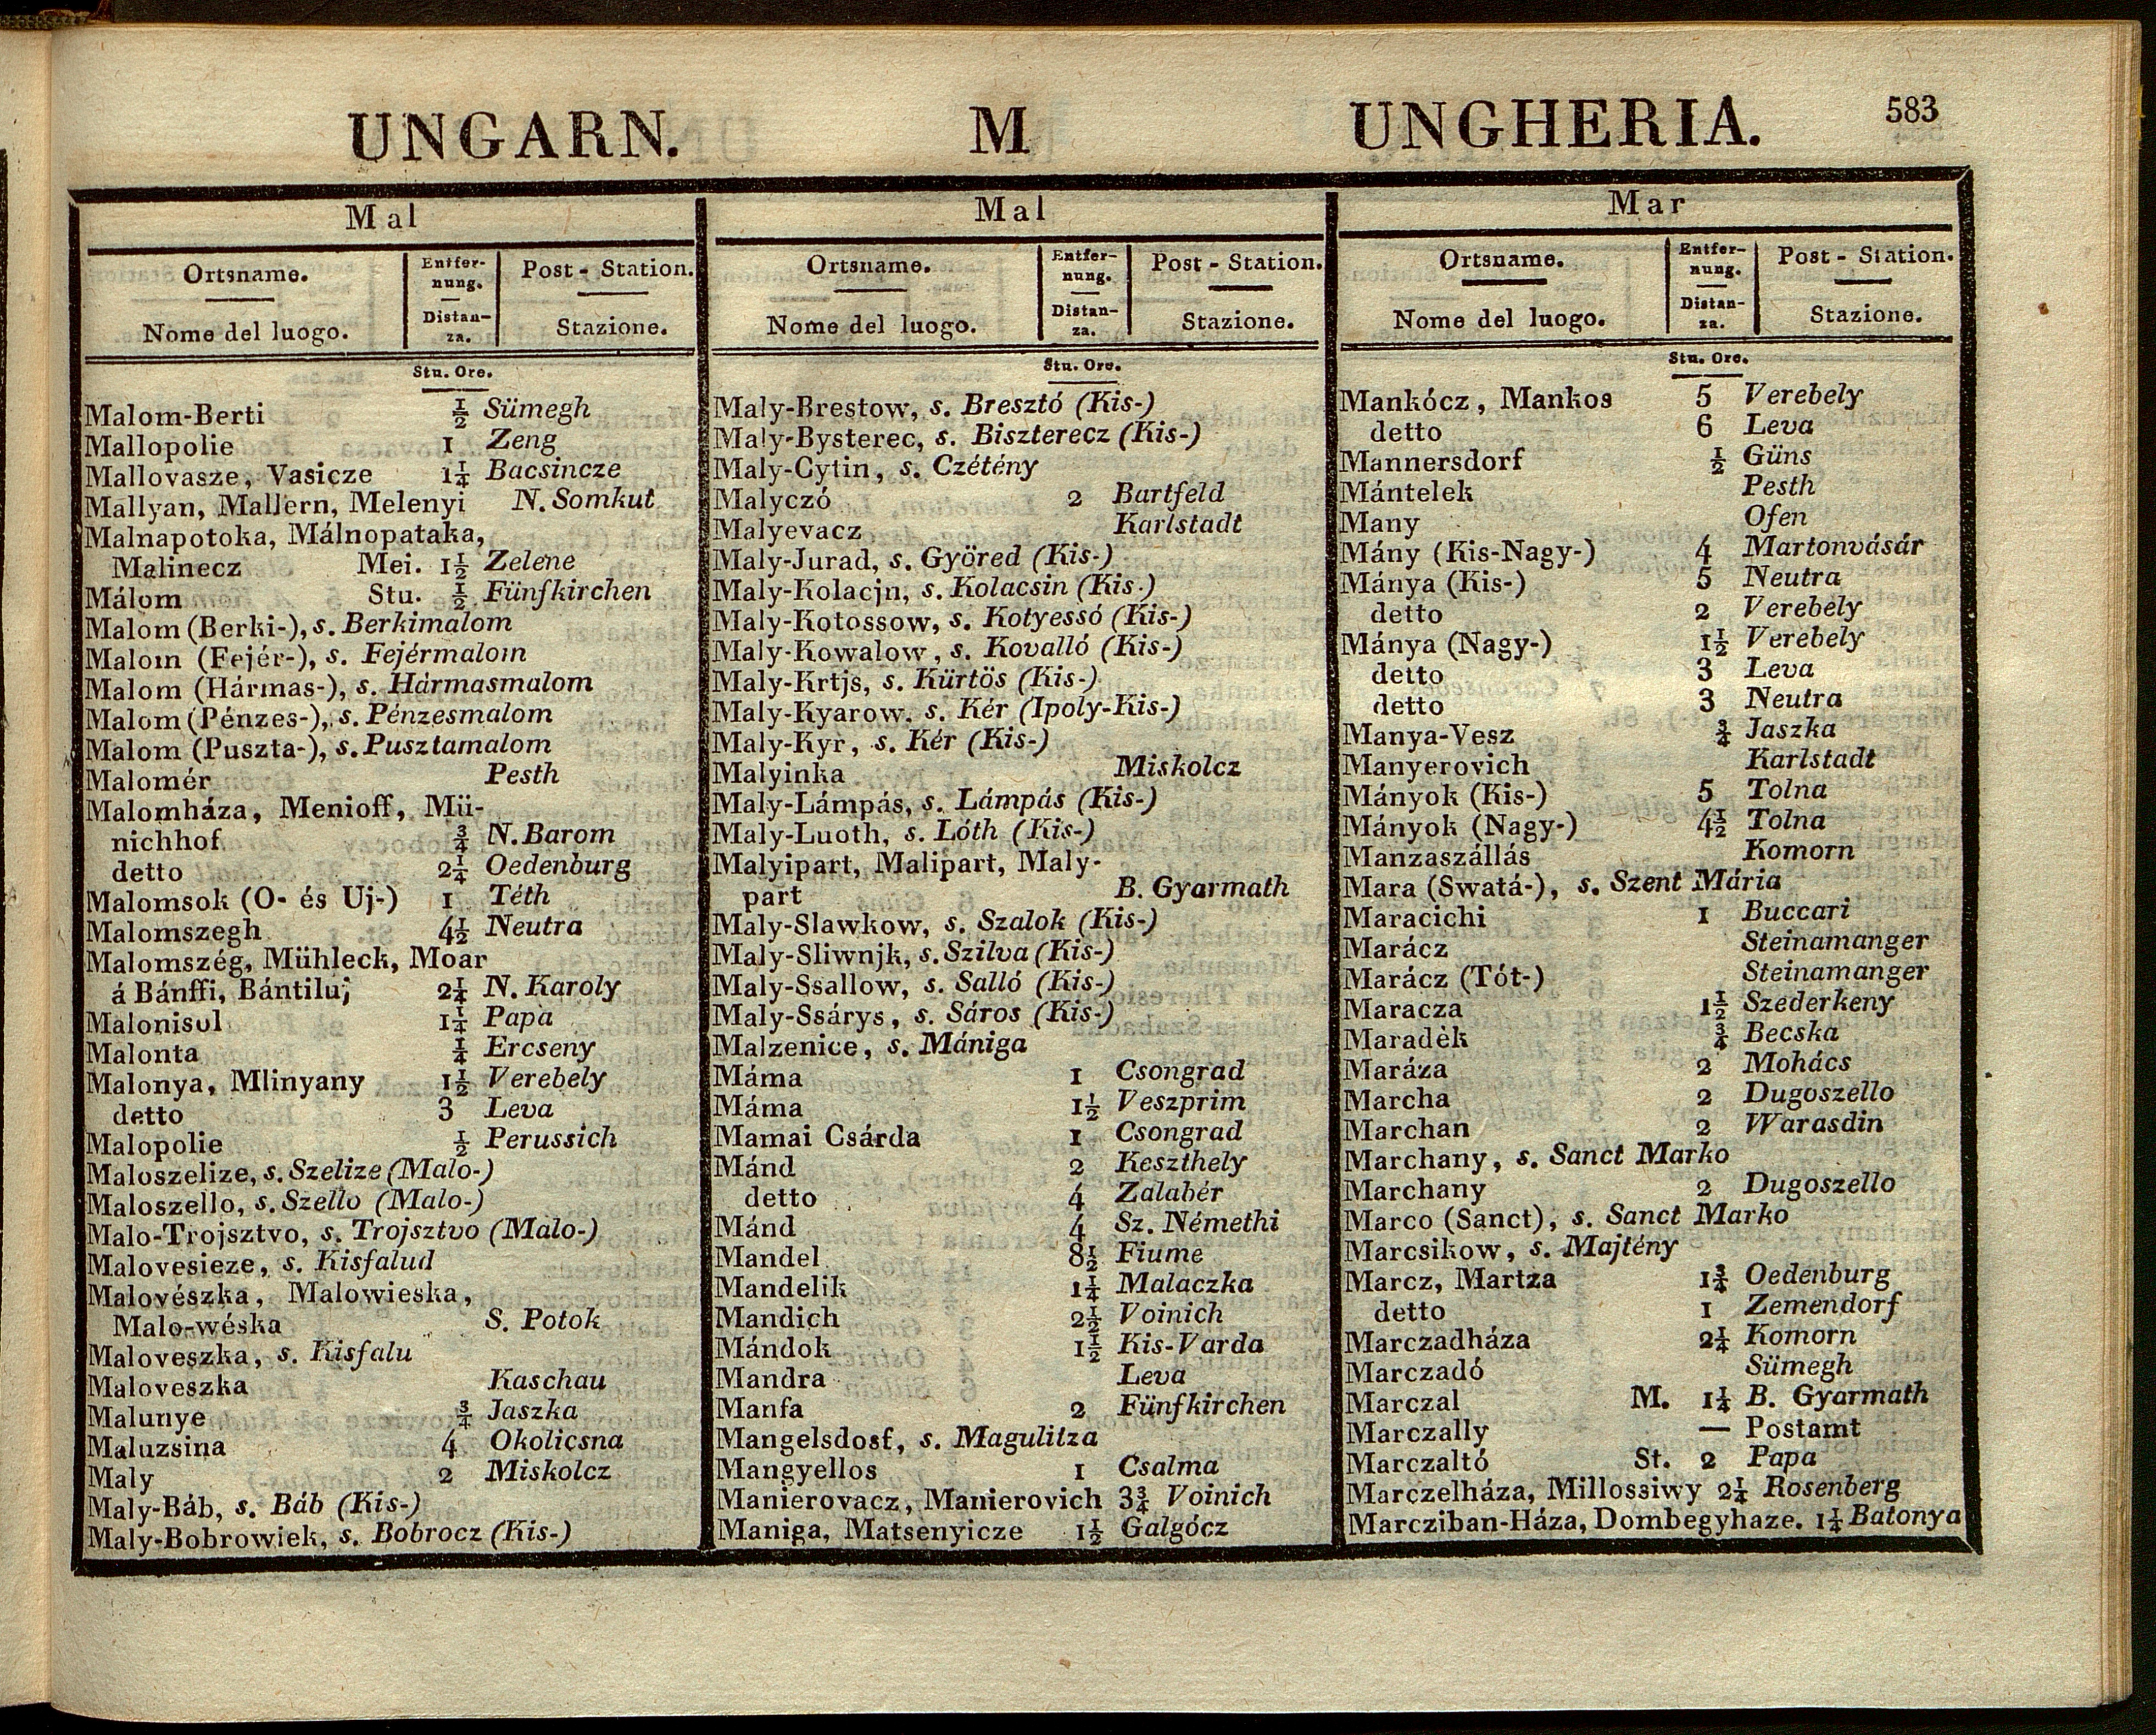 UNGARN. M UNGHERIA. 583
Mal
Ortsname. Entfer- Post-Station.
nung.
Nome del luogo. Distan- Stazione.
za.
Stu. Ore.
Malom-Berti ½ Sümegh
Mallopolie 1 Zeng
Mallovasze, Vasicze 1¼ Bacsincze
Mallyan, Mallern, Melenyi N. Somkut
Malnapotoka, Málnopataka,
Malinecz Mei. 1½ Zelene
Málom Stu. ½ Fünfkirchen
Malom (Berki-), s. Berkimalom
Malom (Fejér-), s. Fejérmalom
Malom (Hármas-), s. Hármasmalom
Malom (Pénzes-), s. Pénzesmalom
Malom (Puszta-), s. Pusztamalom
Malomér Pesth
Malomháza, Menioff, Mü-
nichhof ¾ N. Barom
detto 2¼ Oedenburg
Malomsok (O- és Uj-) 1 Téth
Malomszegh 4½ Neutra
Malomszég, Mühleck, Moar
á Bánffi, Bántiluj 2¼ N. Karoly
Malonisol 1¼ Papa
Malonta ¼ Ercseny
Malonya, Mlinyany 1½ Verebely
detto 3 Leva
Malopolie ½ Perussich
Maloszelize, s. Szelize (Malo-)
Maloszello, s. Szello (Malo-)
Malo-Trojsztvo, s. Trojsztvo (Malo-)
Malovesieze, s. Kisfalud
Malovészka, Malowieska,
Malo-wéska S. Potok
Maloveszka, s. Kisfalu
Maloveszka Kaschau
Malunye ¾ Jaszka
Maluzsina 4 Okolicsna
Maly 2 Miskolcz
Maly-Báb, s. Báb (Kis-)
Maly-Bobrowiek, s. Bobrocz (Kis-)
Mal
Ortsname. Entfer- Post-Station.
nung.
Nome del luogo. Distan- Stazione.
za.
Stu. Ore.
Maly-Brestow, s. Bresztó (Kis-)
Maly-Bysterec, s. Biszterecz (Kis-)
Maly-Cytin, s. Czétény
Malyczó 2 Bartfeld
Malyevacz Karlstadt
Maly-Jurad, s. Györed (Kis-)
Maly-Kolacjn, s. Kolacsin (Kis-)
Maly-Kotossow, s. Kotyessó (Kis-)
Maly-Kowalow, s. Kovalló (Kis-)
Maly-Krtjs, s. Kürtös (Kis-)
Maly-Kyarow. s. Kér (Ipoly-Kis-)
Maly-Kyr, s. Kér (Kis-)
Malyinka Miskolcz
Maly-Lámpás, s. Lámpás (Kis-)
Maly-Luoth, s. Lóth (Kis-)
Malyipart, Malipart, Maly-
part B. Gyarmath
Maly-Slawkow, s. Szalok (Kis-)
Maly-Sliwnjk, s. Szilva (Kis-)
Maly-Ssallow, s. Salló (Kis-)
Maly-Ssárys, s. Sáros (Kis-)
Malzenice, s. Mániga
Máma 1 Csongrad
Máma 1½ Veszprim
Mamai Csárda 1 Csongrad
Mánd 2 Keszthely
detto 4 Zalabér
Mánd 4 Sz. Némethi
Mandel 8½ Fiume
Mandelik 1¼ Malaczka
Mandich 2½ Voinich
Mándok 1½ Kis-Varda
Mandra Leva
Manfa 2 Fünfkirchen
Mangelsdosf, s. Magulitza
Mangyellos 1 Csalma
Manierovacz, Manierovich 3¾ Voinich
Maniga, Matsenyicze 1½ Galgócz
Mar
Ortsname. Entfer- Post-Station.
nung.
Nome del luogo. Distan- Stazione.
za.
Stu. Ore.
Mankócz, Mankos 5 Verebely
detto 6 Leva
Mannersdorf ½ Güns
Mántelek Pesth
Many Ofen
Mány (Kis-Nagy-) 4 Martonvásár
Mánya (Kis-) 5 Neutra
detto 2 Verebely
Mánya (Nagy-) 1½ Verebely
detto 3 Leva
detto 3 Neutra
Manya-Vesz ¾ Jaszka
Manyerovich Karlstadt
Mányok (Kis-) 5 Tolna
Mányok (Nagy-) 4½ Tolna
Manzaszállás Komorn
Mara (Swatá-), s. Szent Mária
Maracichi 1 Buccari
Marácz Steinamanger
Marácz (Tót-) Steinamanger
Maracza 1½ Szederkeny
Maradék ¾ Becska
Maráza 2 Mohács
Marcha 2 Dugoszello
Marchan 2 Warasdin
Marchany, s. Sanct Marko
Marchany 2 Dugoszello
Marco (Sanct), s. Sanct Marko
Marcsikow, s. Majtény
Marcz, Martza 1¾ Oedenburg
detto 1 Zemendorf
Marczadháza 2¼ Komorn
Marczadó Sümegh
Marczal M. 1¼ B. Gyarmath
Marczally — Postamt
Marczaltó St. 2 Papa
Marczelháza, Millossiwy 2¼ Rosenberg
Marcziban-Háza, Dombegyhaze. 1¼ Batonya